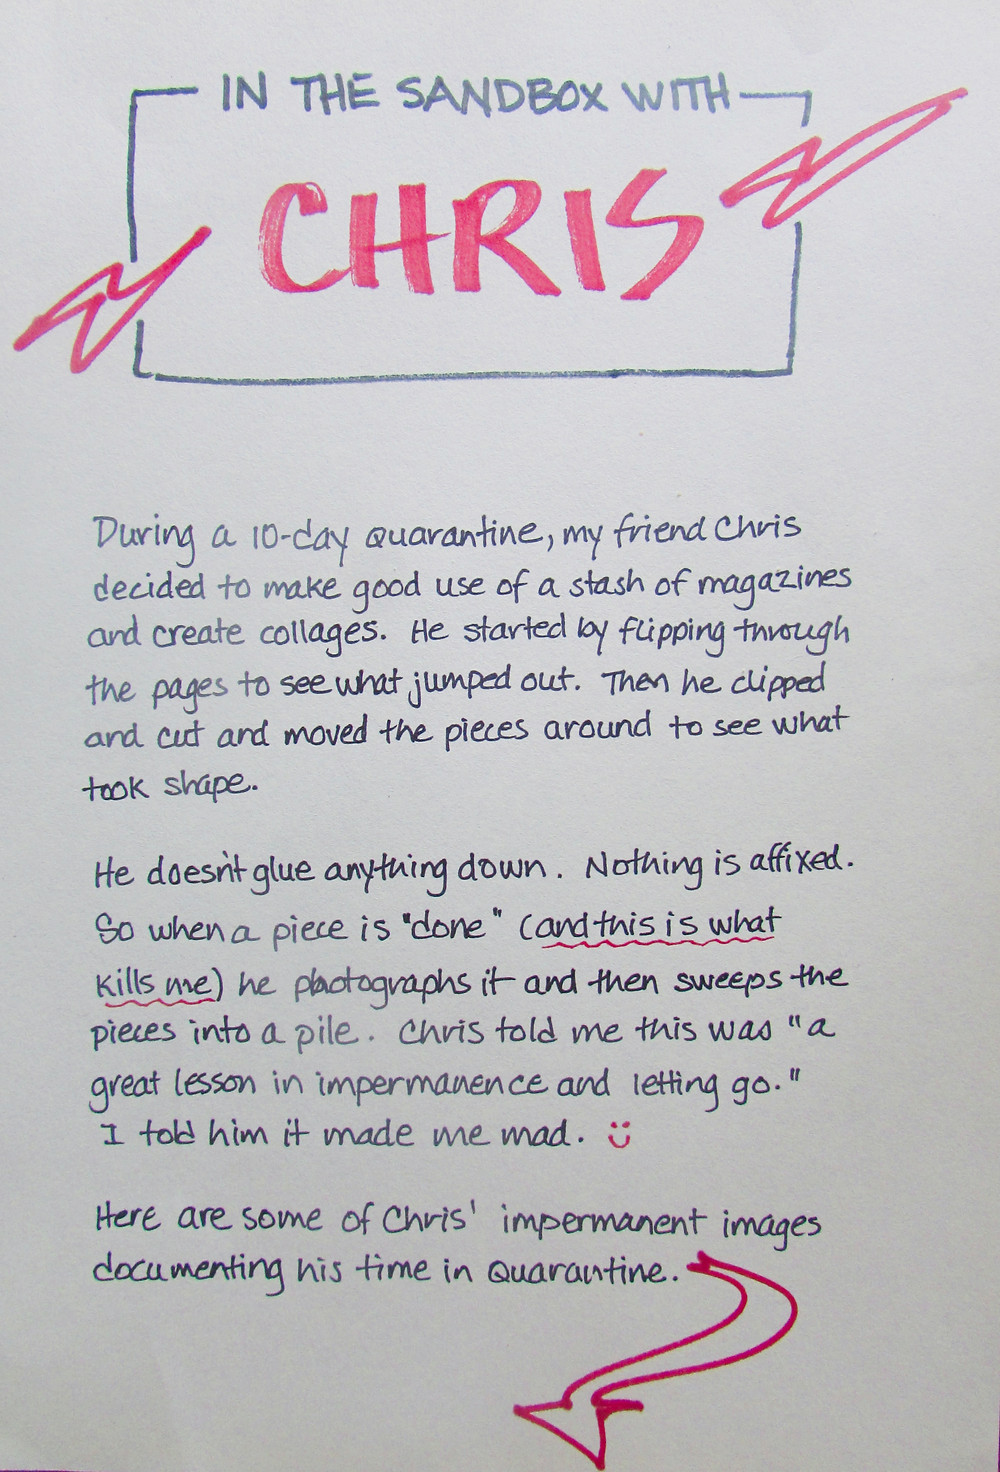 IN THE SANDBOX WITH
CHRIS
During a 10-day quarantine, my friend Chris
decided to make good use of a stash of magazines
and create collages. He started by flipping through
the pages to see what jumped out. Then he clipped
and cut and moved the pieces around to see what
took shape.
He doesn't glue anything down. Nothing is affixed.
So when a piece is "done" (and this is what
kills me) he photographs it and then sweeps the
pieces into a pile. Chris told me this was "a
great lesson in impermanence and letting go."
I told him it made me mad. :)
Here are some of Chris' impermanent images
documenting his time in quarantine.